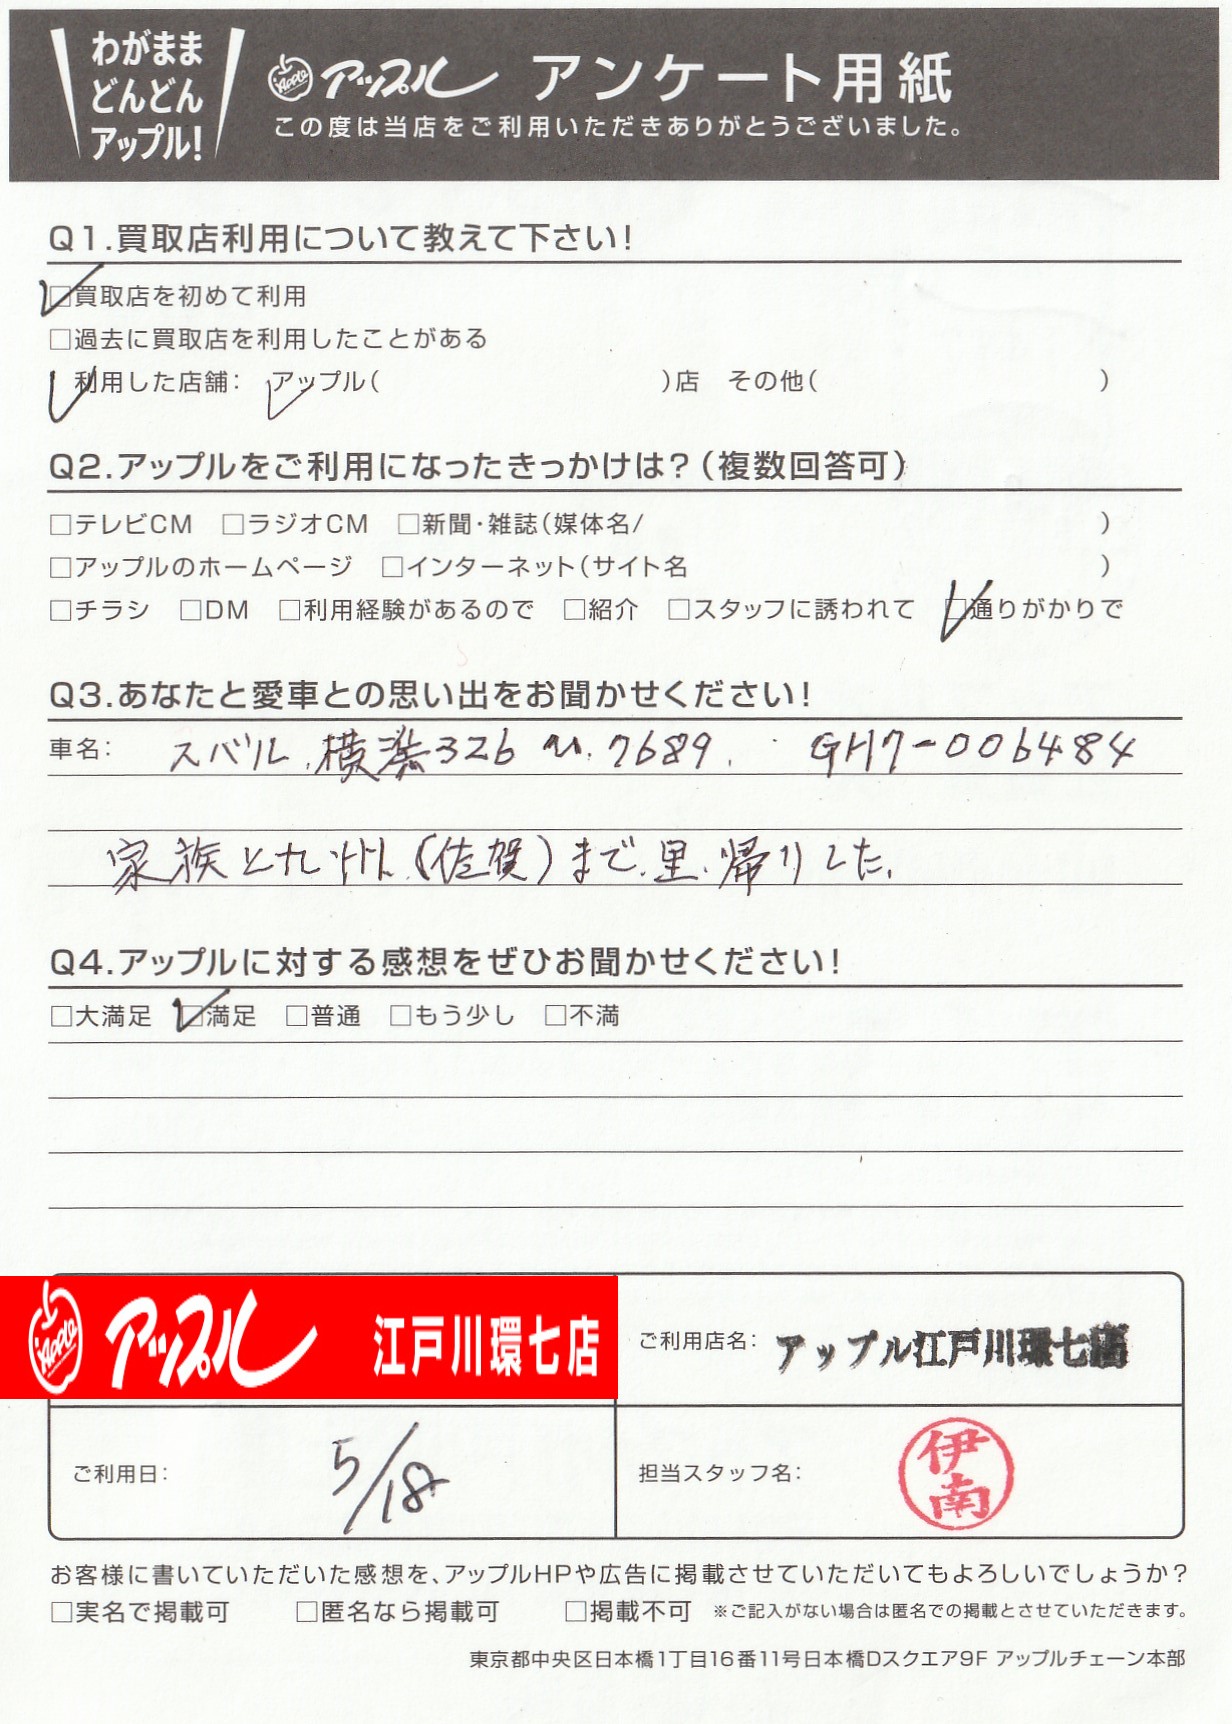 わがまま
どんどん
アップル!
Apple アップル アンケート用紙
この度は当店をご利用いただきありがとうございました。
Q1.買取店利用について教えて下さい!
□買取店を初めて利用
□過去に買取店を利用したことがある
利用した店舗: アップル( )店 その他( )
Q2.アップルをご利用になったきっかけは?(複数回答可)
□テレビCM □ラジオCM □新聞・雑誌(媒体名/ )
□アップルのホームページ □インターネット(サイト名 )
□チラシ □DM □利用経験があるので □紹介 □スタッフに誘われて □通りがかりで
Q3.あなたと愛車との思い出をお聞かせください!
車名: スバル. 横浜326 7689. GH7-006484
家族と九州(佐賀)まで里帰りした.
Q4.アップルに対する感想をぜひお聞かせください!
□大満足 □満足 □普通 □もう少し □不満
Apple アップル 江戸川環七店
ご利用店名: アップル江戸川環七店
ご利用日: 5/18
担当スタッフ名: 伊南
お客様に書いていただいた感想を、アップルHPや広告に掲載させていただいてもよろしいでしょうか?
□実名で掲載可 □匿名なら掲載可 □掲載不可 ※ご記入がない場合は匿名での掲載とさせていただきます。
東京都中央区日本橋1丁目16番11号日本橋Dスクエア9F アップルチェーン本部